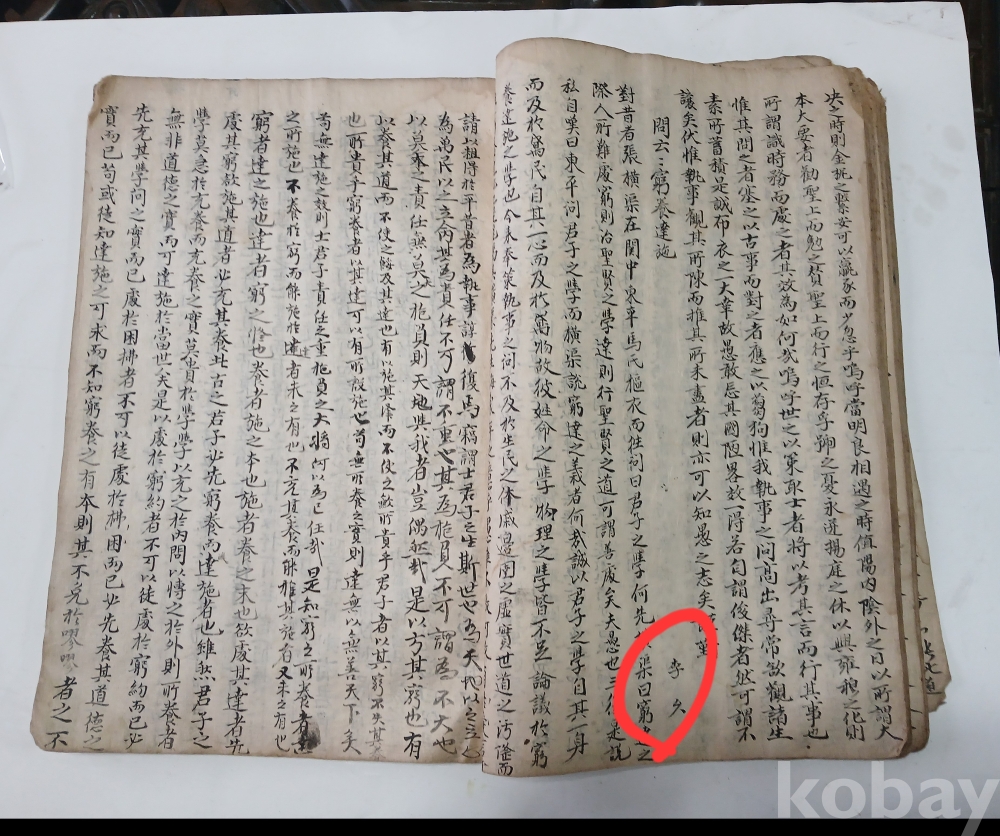 决之時則金抗之繫安可以羸豕而少忽乎嗚呼當明良相遇之時值陽內陰外之日以所謂大
本大要者勸聖上而勉之贊聖上而行之恒存孚號之憂永遵揚庭之休以興雍穆之化則
所謂識時務而處之者其效為如何哉嗚呼世之以策取士者將以考其言而行其事也
惟其問之者塞之以古事而對之者應之以芻狗惟我執事之問高出尋常欲觀諸生
素所蓄積是誠布衣之大幸故愚敢忘其固陋畧效一得若句謂俊傑者然可謂不
讓矣伏惟執事觀其所陳而推其所未盡者則亦可以知愚之志矣謹
問云云窮養達施
李 久
對昔者張橫渠在関中東平馬氏樞衣而往問曰君子之學何先 渠曰窮達之
際人所難處窮則治聖賢之學達則行聖賢之道可謂善處矣夫愚也三復是說
私自嘆曰東平問君子之學而橫渠說窮達之義者何哉誠以君子之學自其一身
而及於萬民自其一心而及於萬物故彼姓命之學物理之學皆不足論議於窮
養達施之學也今承奉策執事之問不及於生民之休戚邊圉之虛實世道之汚隆而
請以粗得於平昔者為執事 復焉竊謂士君子之生斯世也為天地以之立心
為萬民以之立命其為責任不可謂不重也其為抱負不可謂為不大也
以莫重之責任無莫大之抱負則天地生我者豈偶然哉是以方其窮也有
以養其道而不使之餒及其達也有以施其澤而不使之 所貴乎君子者以其窮不失其
也所貴乎窮養者以其達可以有所設施也苟無所養之實則達無以無善天下矣
苟無達施之效則士君子責任之重抱負之大將何以為己任哉是知窮之所養者
之所施也不養於窮而能施於達者未之有也不充其養而能雅其施者又未之有也
窮者達之施也達者窮之 也養者施之本也施者養之末也欲處其達者先
處其窮欲施其道者必充其養此古之君子必先窮養而後達施者也雖然君子之
學莫急於充養而充養之實莫貴於學學以充之於內問以博之於外則所養者
無非道德之實而可達施於當世矣是以處於窮約者不可以徒處於窮約而已必
先充其學問之實而已處於困拂者不可以徒處於拂困而已必先養其道德之
實而已苟或徒知達施之可求而不知窮養之有本則其不免於 者之不
kobay